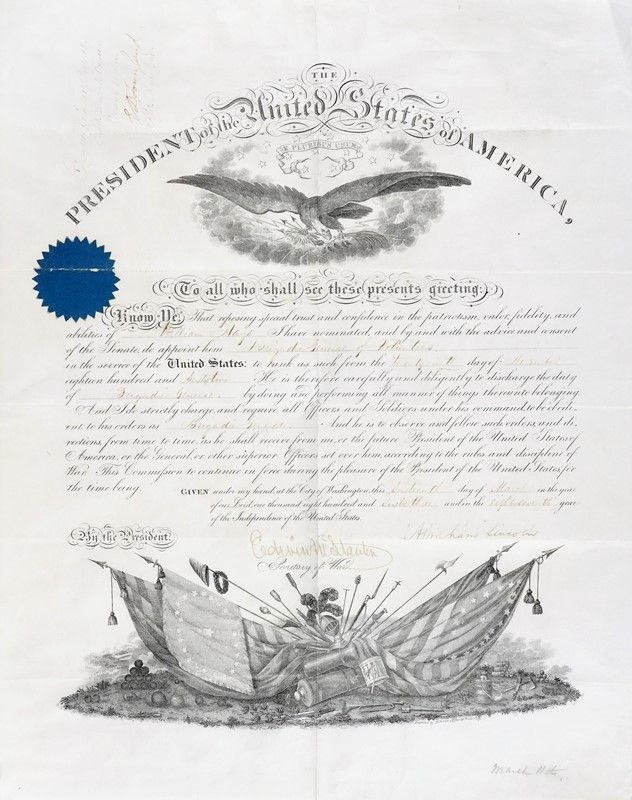 THE
PRESIDENT of the United States of AMERICA,
E PLURIBUS UNUM
To all who shall see these presents greeting:
Know Ye, That reposing special trust and confidence in the patriotism, valor, fidelity, and
abilities of William I have nominated, and by and with the advice and consent
of the Senate, do appoint him Brigadier General of Volunteers
in the service of the United States: to rank as such from the day of
eighteen hundred and sixty two He is therefore carefully and diligently to discharge the duty
of Brigadier General by doing and performing all manner of things thereunto belonging.
And I do strictly charge, and require all Officers and Soldiers under his command, to be obedi-
ent to his orders as Brigadier General And he is to observe and follow such orders, and di-
rections, from time to time, as he shall receive from me, or the future President of the United States of
America, or the General, or other superior Officers set over him, according to the rules and discipline of
War. This Commission to continue in force during the pleasure of the President of the United States, for
the time being.
GIVEN under my hand, at the City of Washington, this sixteenth day of March in the year
of our Lord, one thousand eight hundred and sixty three and in the eighty seventh year
of the Independence of the United States.
By the President,
Abraham Lincoln
Edwin M Stanton
Secretary of War.